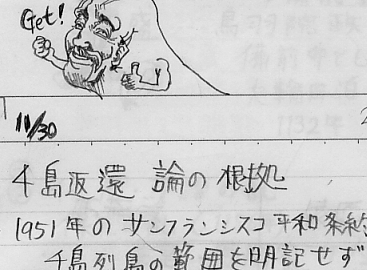 Get!
11/30
千島返還論の根拠
1951年のサンフランシスコ平和条約
千島列島の範囲を明記せず